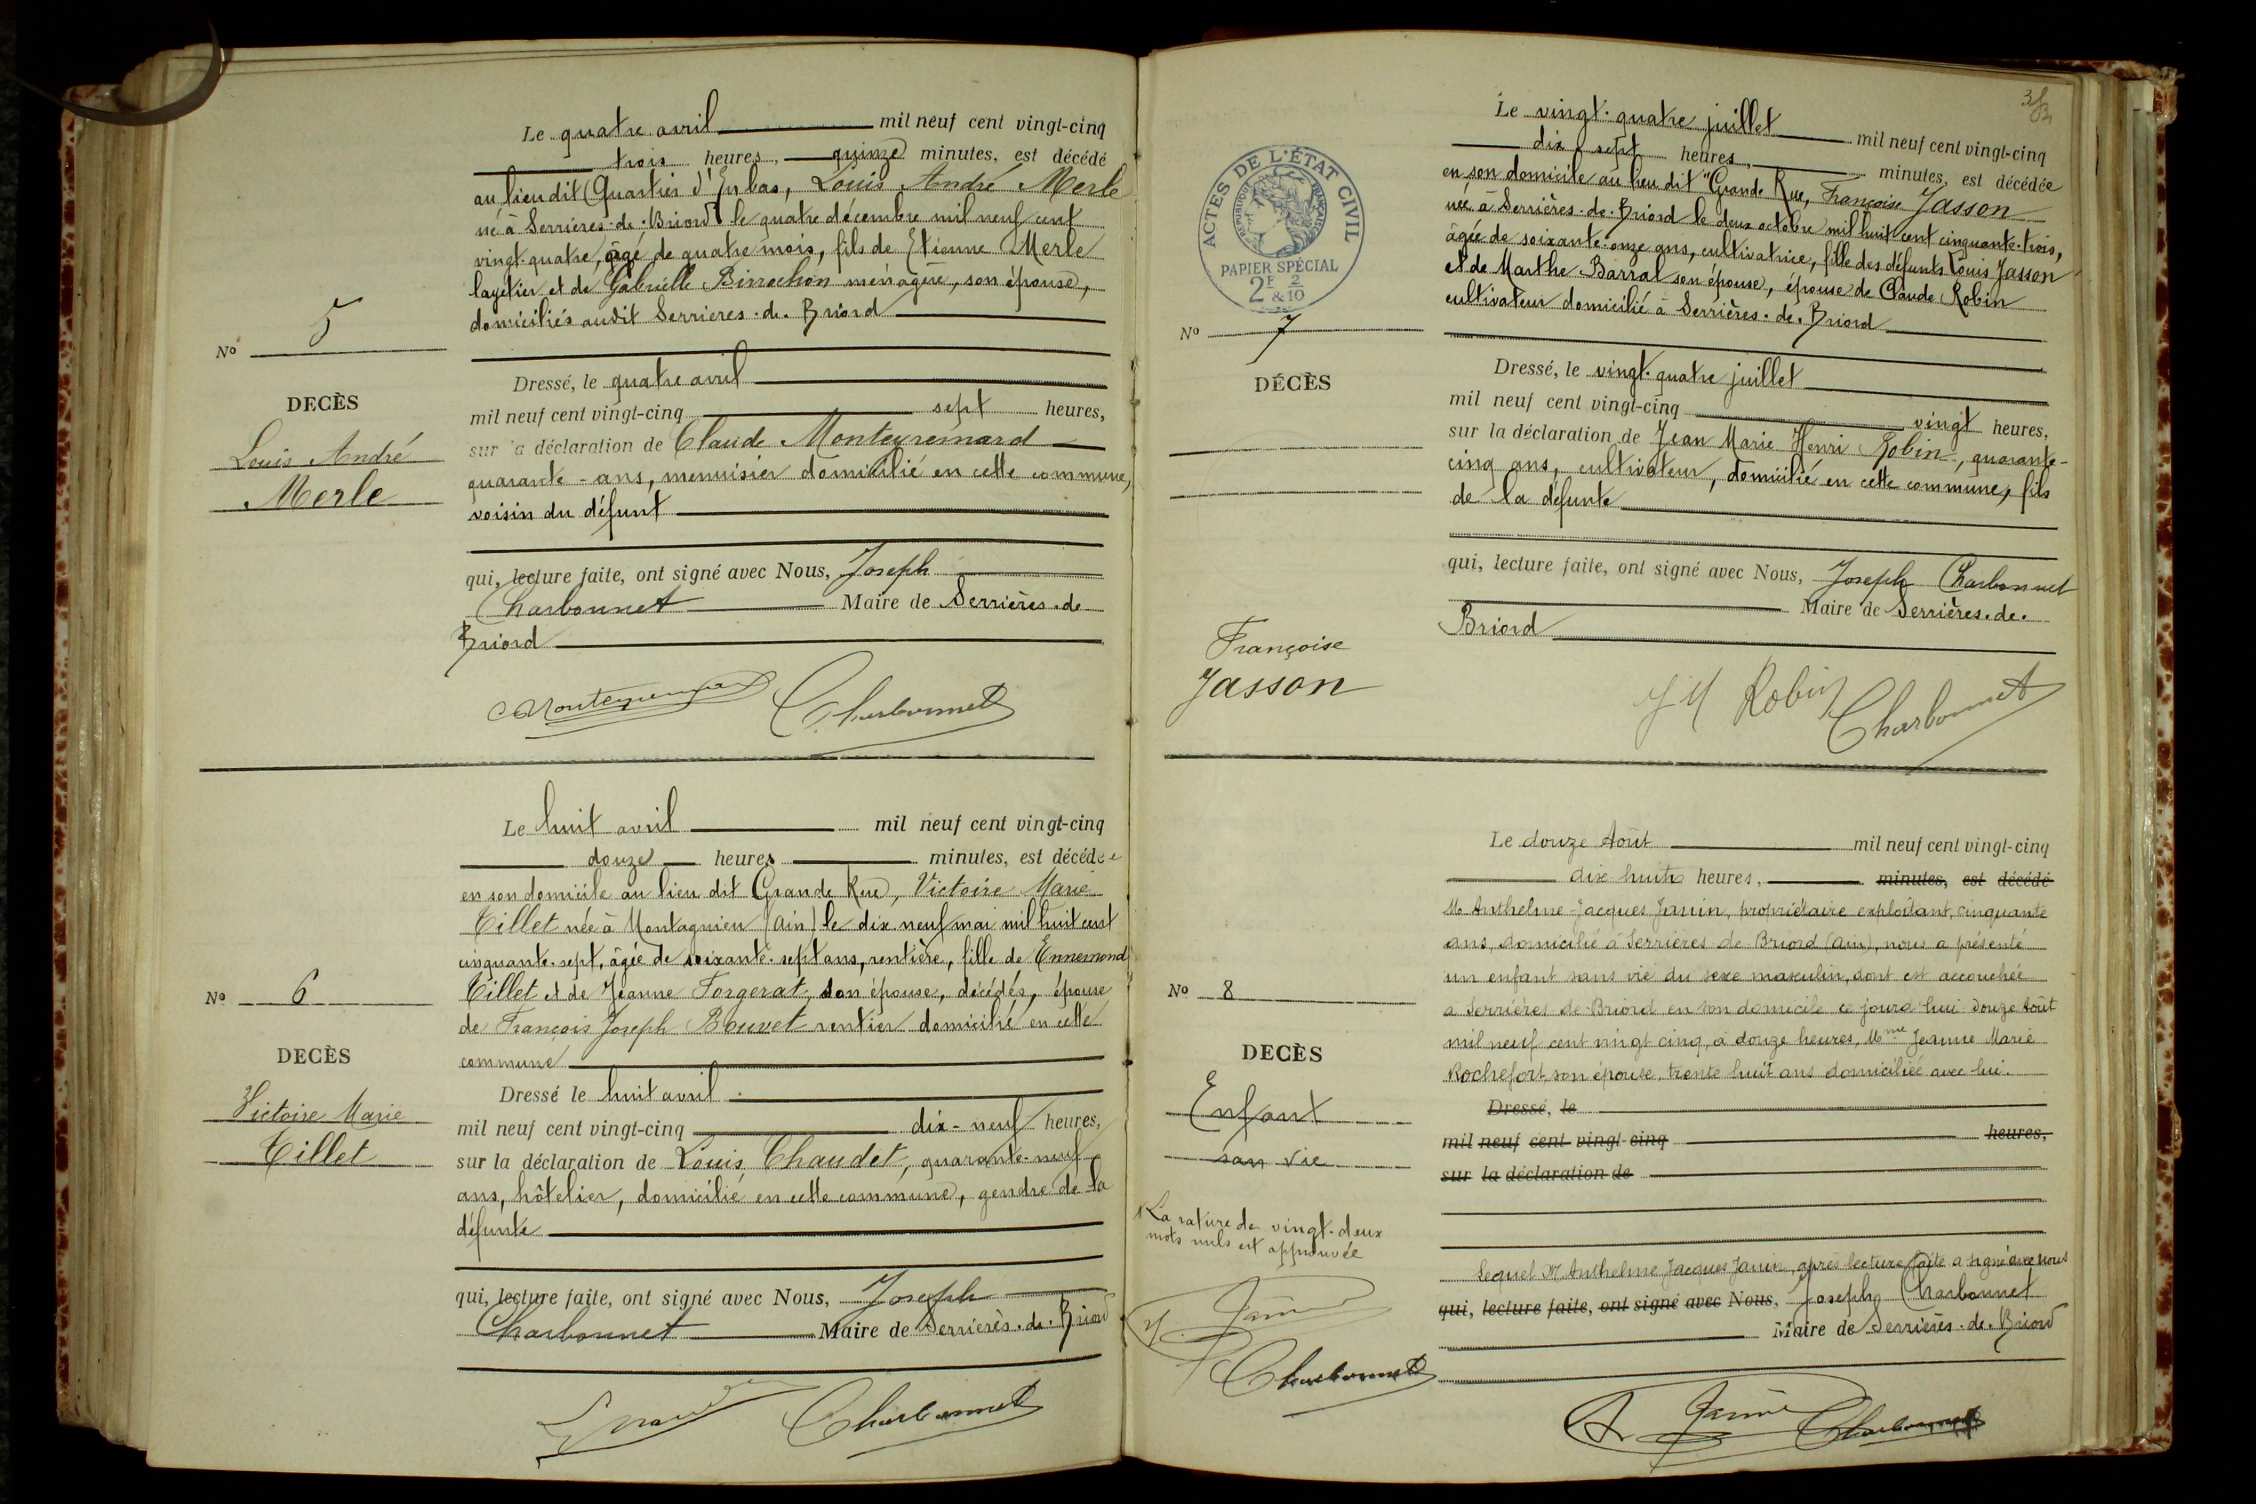 Le quatre avril mil neuf cent vingt-cinq
trois heures, quinze minutes, est décédé
au lieu dit Quartier d'En bas, Louis André Merle
né à Serrières-de-Briord le quatre décembre mil neuf cent
vingt-quatre, âgé de quatre mois, fils de Etienne Merle
layetier et de Gabrielle Binochon ménagère, son épouse,
domiciliés audit Serrières-de-Briord
No 5
DECÈS
Louis André
Merle
Dressé, le quatre avril
mil neuf cent vingt-cinq sept heures,
sur la déclaration de Claude Monteyremard
quarante-ans, menuisier domicilié en cette commune,
voisin du défunt
qui, lecture faite, ont signé avec Nous, Joseph
Charbonnet Maire de Serrières-de-
Briord
Charbonnet
Le huit avril mil neuf cent vingt-cinq
douze heures minutes, est décédée
en son domicile au lieu dit Grande Rue, Victoire Marie
Tillet née à Montagnieu (Ain) le dix neuf mai mil huit cent
cinquante-sept, âgée de soixante-sept ans, rentière, fille de Ennemond
Tillet et de Jeanne Forgerat, son épouse, décédés, épouse
de François Joseph Bouvet rentier domicilié en cette
commune
No 6
DECÈS
Victoire Marie
Tillet
Dressé le huit avril
mil neuf cent vingt-cinq dix-neuf heures,
sur la déclaration de Louis Chaudet, quarante-neuf
ans, hôtelier, domicilié en cette commune, gendre de la
défunte
qui, lecture faite, ont signé avec Nous, Joseph
Charbonnet Maire de Serrières-de-Briord
Charbonnet
ACTES DE L'ÉTAT CIVIL
RÉPUBLIQUE FRANÇAISE
PAPIER SPÉCIAL
2F & 2/10
Le vingt-quatre juillet mil neuf cent vingt-cinq
dix sept heures, minutes, est décédée
en son domicile au lieu dit "Grande Rue, Françoise Jasson
née à Serrières-de-Briord le deux octobre mil huit cent cinquante-trois,
âgée de soixante-onze ans, cultivatrice, fille des défunts Louis Jasson
et de Marthe Barral son épouse, épouse de Claude Robin
cultivateur domicilié à Serrières-de-Briord
No 7
DÉCÈS
Dressé, le vingt-quatre juillet
mil neuf cent vingt-cinq vingt heures,
sur la déclaration de Jean Marie Henri Robin, quarante-
cinq ans, cultivateur, domicilié en cette commune, fils
de la défunte
qui, lecture faite, ont signé avec Nous, Joseph Charbonnet
Maire de Serrières-de-
Briord
Françoise
Jasson
J M Robin
Charbonnet
Le douze Août mil neuf cent vingt-cinq
dix huit heures, minutes, est décédé
M. Anthelme-Jacques Janin, propriétaire exploitant, cinquante
ans, domicilié à Serrières de Briord (Ain), nous a présenté
un enfant sans vie du sexe masculin, dont est accouchée
à Serrières de Briord en son domicile ce jourd'hui douze Août
mil neuf cent vingt cinq, à douze heures, Mme Jeanne Marie
Rochefort, son épouse, trente huit ans domiciliée avec lui.
No 8
DECÈS
Enfant
san vie
Dressé, le
mil neuf cent vingt-cinq heures,
sur la déclaration de
La rature de vingt-deux
mots nuls est approuvée
Janin
Charbonnet
Lequel M. Anthelme Jacques Janin, après lecture faite a signé avec nous
qui, lecture faite, ont signé avec Nous, Joseph Charbonnet
Maire de Serrières-de-Briord
Janin
Charbonnet